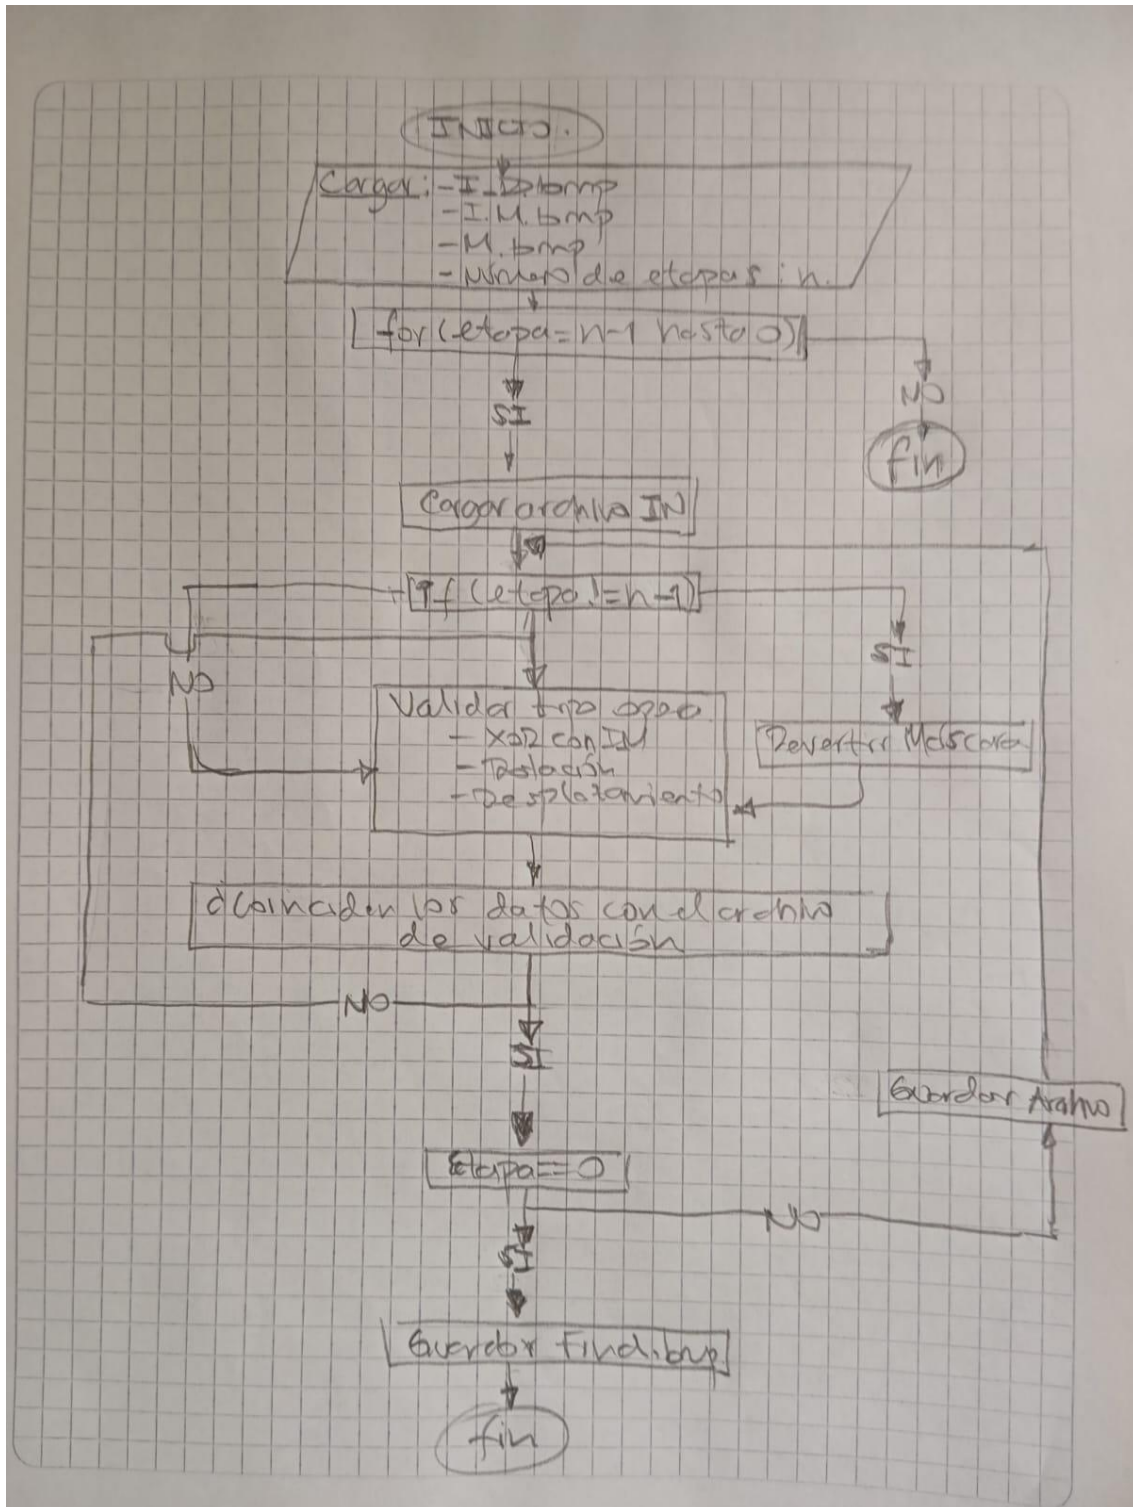 INICIO.
Cargar: -I_D.bmp
-I.M.bmp
-M.bmp
-Número de etapas: n.
for(etapa=n-1 hasta 0)
SI
NO
fin
Cargar archivo IN
If (etapa!=n-1)
SI
NO
Validar tipo
- XOR con IM
- Rotación
- Desplazamiento
Revertir Máscara
¿Coinciden los datos con el archivo
de validación
NO
SI
Guardar Archivo
Etapa==0
NO
SI
Guardar
fin